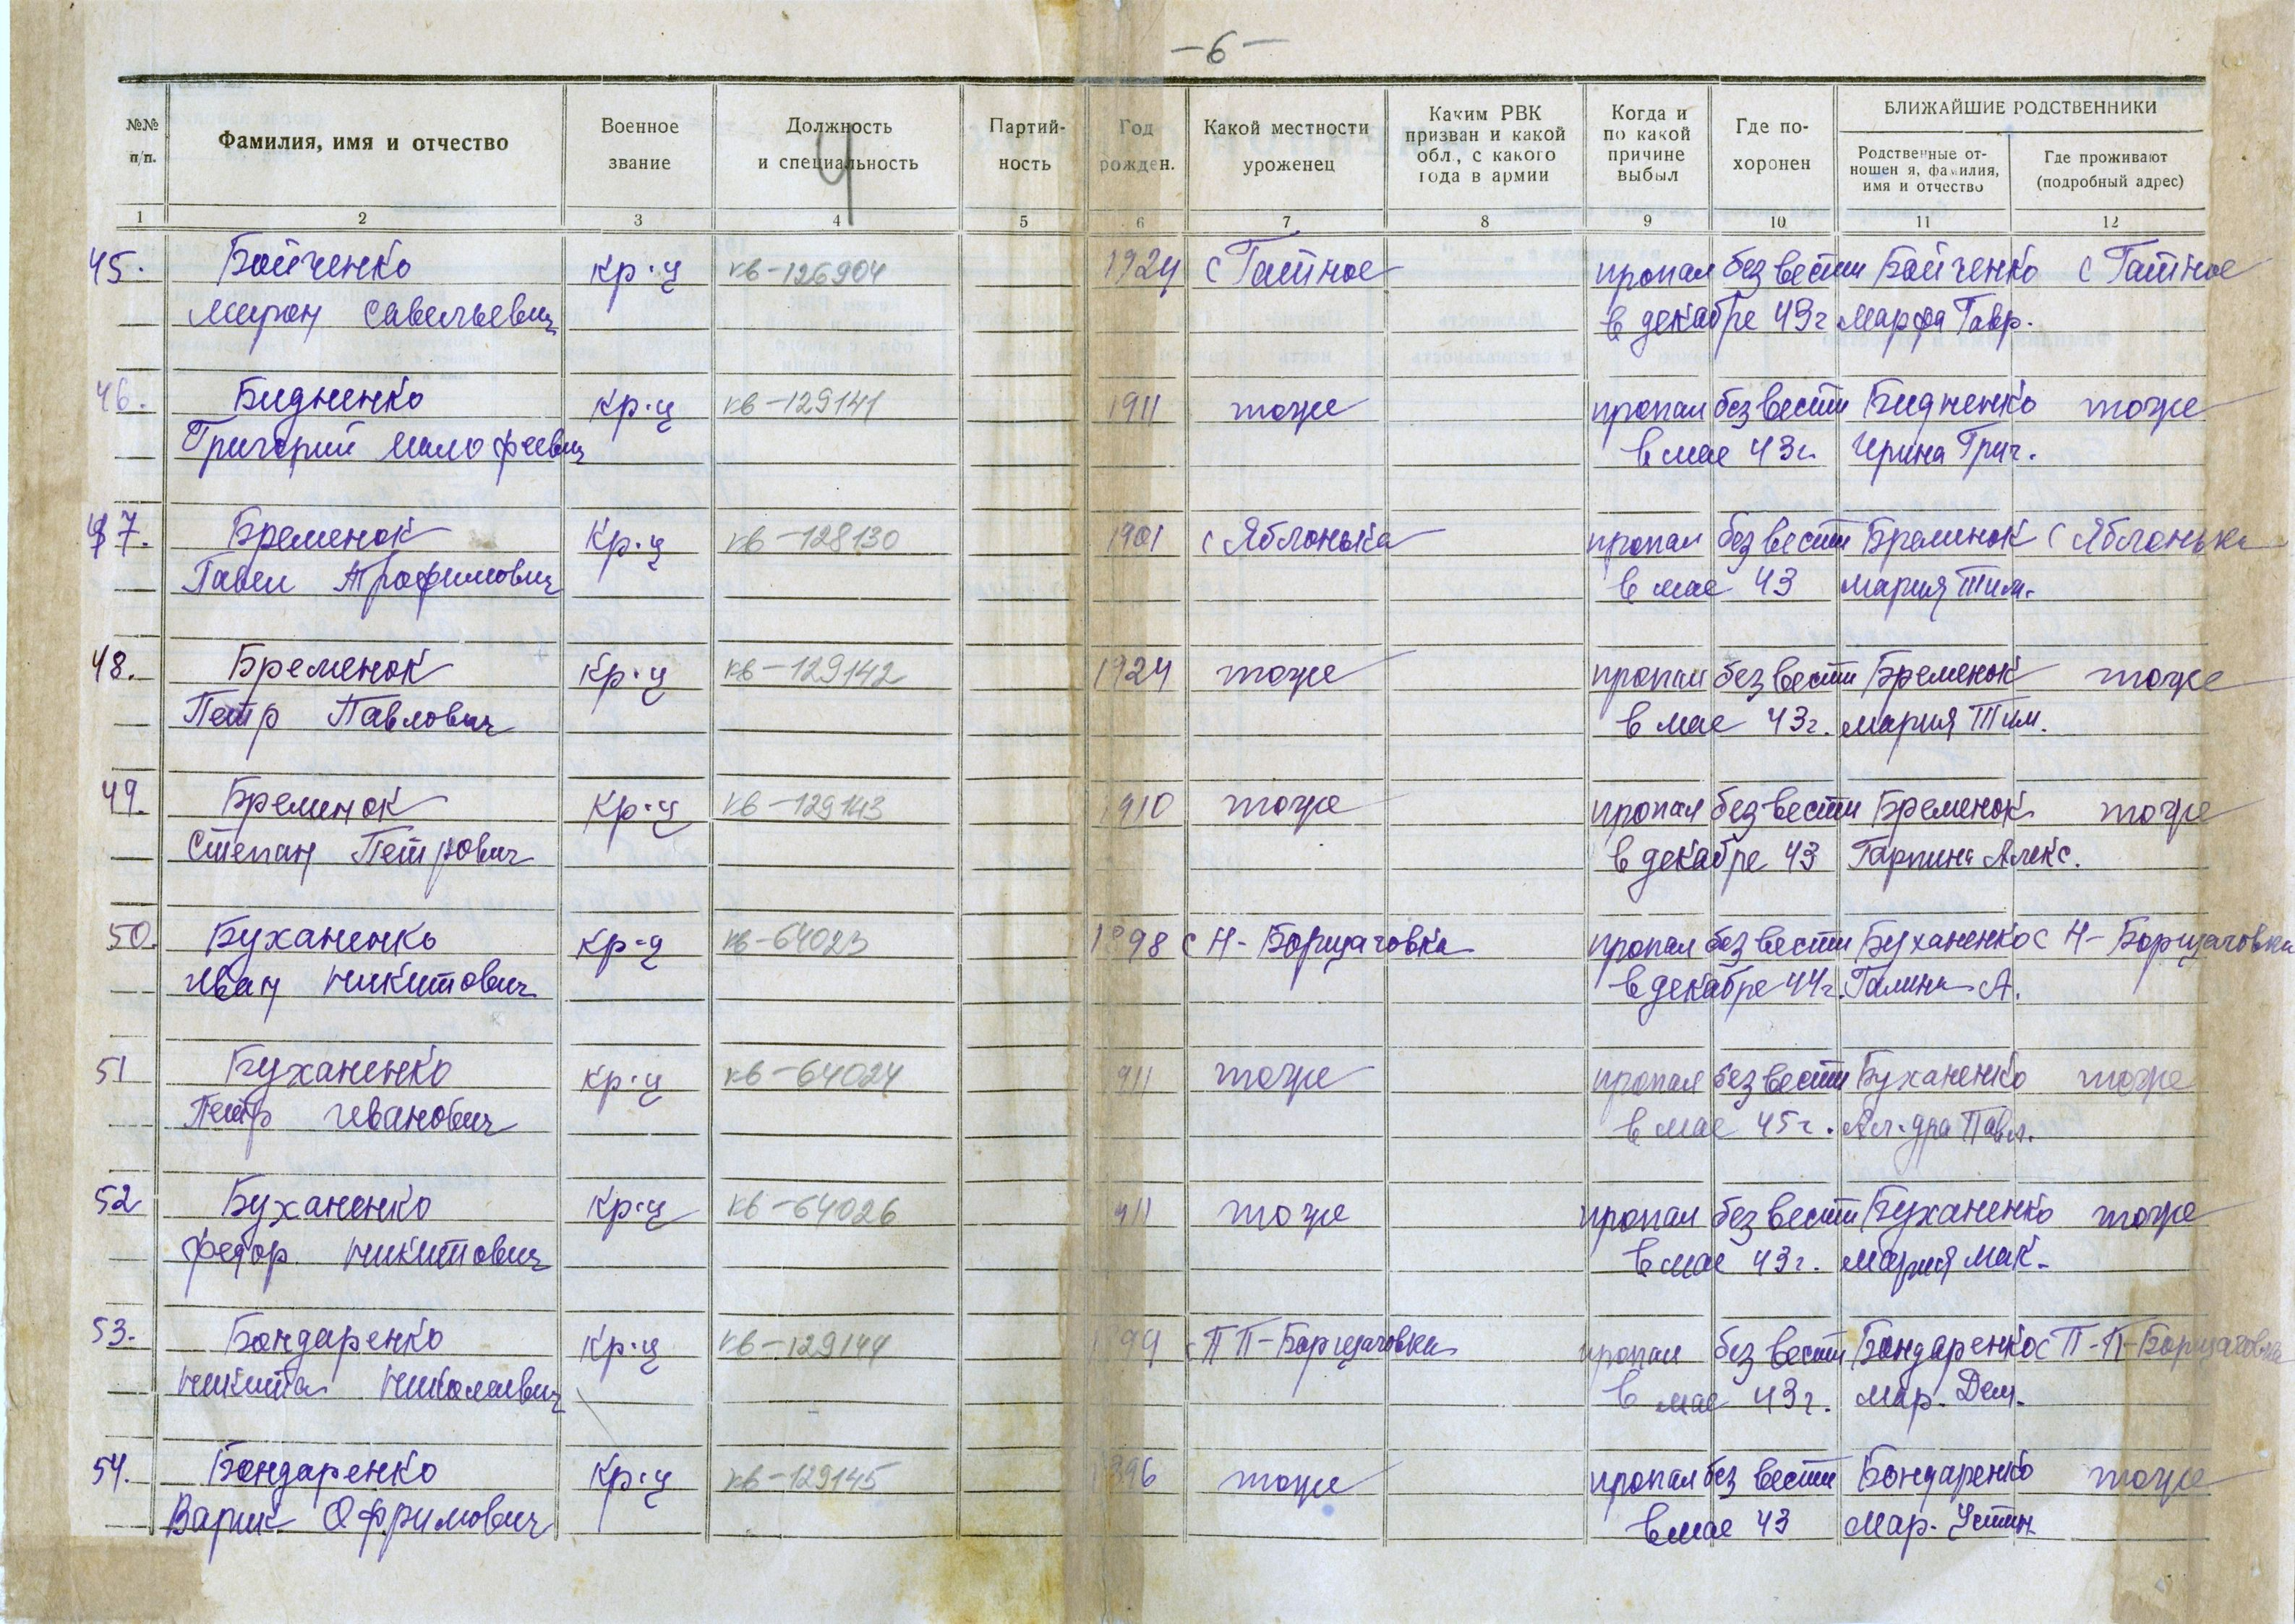 -6-
№№ п/п.
Фамилия, имя и отчество
Военное звание
Должность и специальность
Партийность
Год рожден.
Какой местности уроженец
Каким РВК призван и какой обл., с какого года в армии
Когда и по какой причине выбыл
Где похоронен
БЛИЖАЙШИЕ РОДСТВЕННИКИ
Родственные отношения, фамилия, имя и отчество
Где проживают (подробный адрес)
1 2 3 4 5 6 7 8 9 10 11 12
4
45. Бойченко кр-ц кв-126904 1924 с Гатное пропал без вести Бойченко с Гатное
Мирон Савельевич в декабре 43г Марфа Гавр.
46. Бидненко кр-ц кв-129141 1911 тоже пропал без вести Бидненко тоже
Григорий Малофеевич в мае 43г. Ирина Григ.
47. Бременок Кр-ц кв-128130 1901 с Яблонька пропал без вести Бременок с Яблонька
Павел Трофимович в мае 43 Мария Тим.
48. Бременок Кр-ц кв-129142 1924 тоже пропал без вести Бременок тоже
Петр Павлович в мае 43г. Мария Тим.
49. Бременок Кр-ц кв-129143 1910 тоже пропал без вести Бременок тоже
Степан Петрович в декабре 43 Гарпина Алекс.
50. Буханенко Кр-ц кв-64023 1898 с Н-Борщаговка пропал без вести Буханенко с Н-Борщаговка
Иван Никитович в декабре 44г. Галина А.
51 Буханенко кр-ц кв-64024 1911 тоже пропал без вести Буханенко тоже
Петр Иванович в мае 45г. Ал-дра Павл.
52 Буханенко Кр-ц кв-64026 1911 тоже пропал без вести Буханенко тоже
Федор Никитович в мае 43г. Мария Мак.
53. Бондаренко Кр-ц кв-129144 1899 с П П-Борщаговка пропал без вести Бондаренко с П-П-Борщаговка
Никита Николаевич в мае 43г. Мар. Дем.
54. Бондаренко Кр-ц кв-129145 1896 тоже пропал без вести Бондаренко тоже
Варик Офримович в мае 43 Мар. Устин